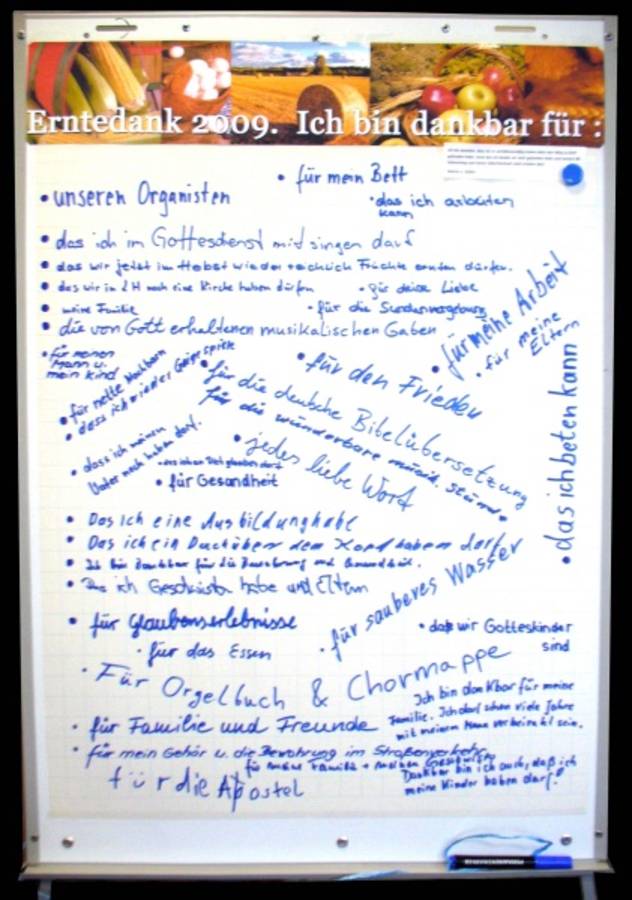 Erntedank 2009. Ich bin dankbar für :
• für mein Bett
• unseren Organisten
• das ich arbeiten
kann
• das ich im Gottesdienst mit singen darf
• das wir jetzt im Herbst wieder reichlich Früchte ernten dürfen.
• das wir in LH noch eine Kirche haben dürfen
• für deine Liebe
• meine Familie
• für die Sündenvergebung
• die von Gott erhaltenen musikalischen Gaben
• für meine Arbeit
• für meine
Eltern
• für meinen
Mann u.
mein Kind
• für nette Nachbarn
• dass ich wieder Geige spiele
• für den Frieden
• für die deutsche Bibelübersetzung
für die wunderbare musik. Stunde
• das ich beten kann
• dass ich meinen
Vater noch haben darf.
• jedes liebe Wort
• für Gesundheit
• Das ich eine Ausbildung habe
• Das ich ein Dach über dem Kopf haben darf
• Ich bin dankbar für die Bewahrung und Gesundheit.
• Das ich Geschwister habe und Eltern
• für Glaubenserlebnisse
• für sauberes Wasser
• daß wir Gotteskinder
sind
• für das Essen
• Für Orgelbuch & Chormappe
Ich bin dankbar für meine
Familie. Ich darf schon viele Jahre
mit meinem Mann verheiratet sein.
• für Familie und Freunde
• für mein Gehör u. die Bewahrung im Straßenverkehr
für meine Familie + meinen
Dankbar bin ich auch, daß ich
meine Kinder haben darf!
für die Apostel